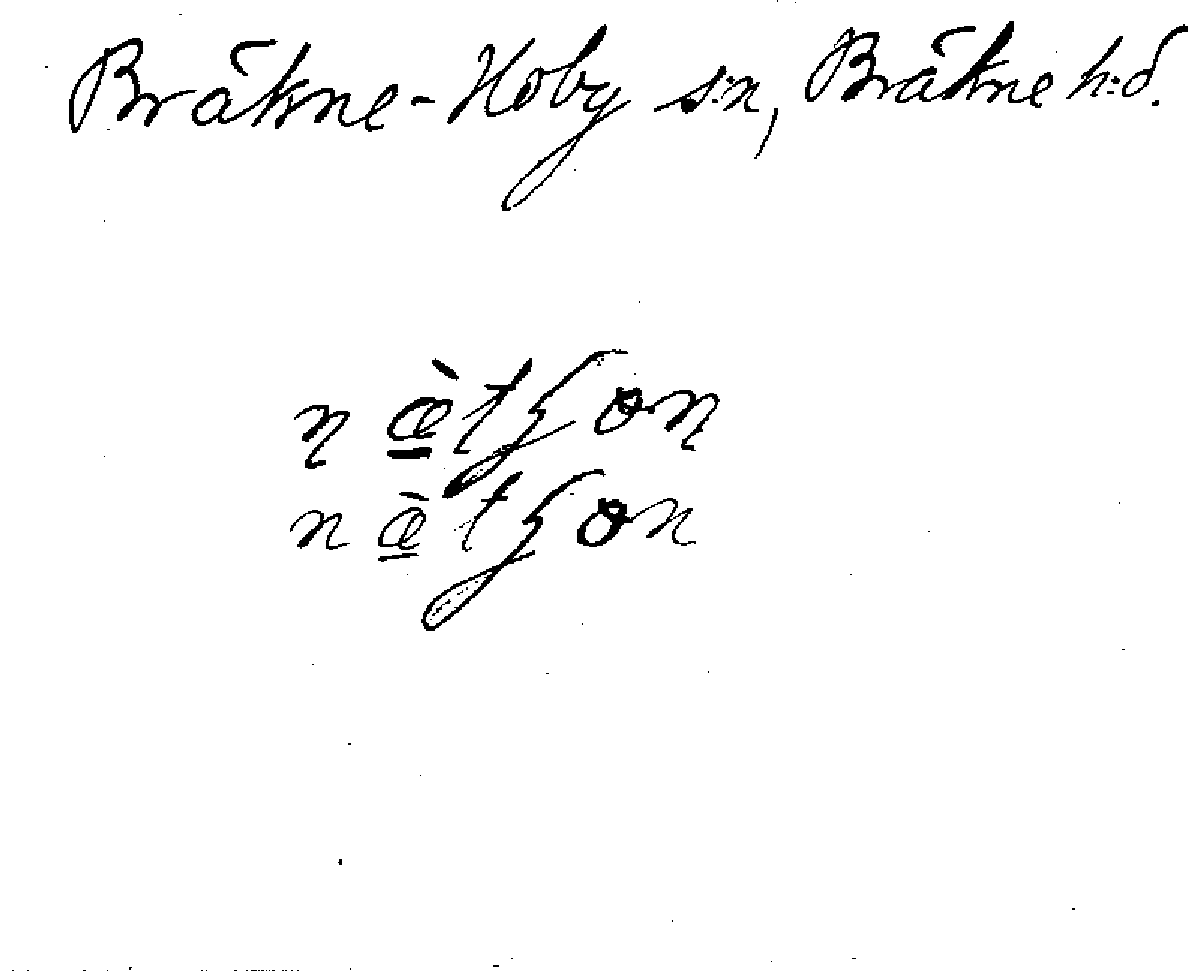 Bräkne-Hoby s:n, Bräkne h:d.
ɳæ̱̀tʃɵɳ
næ̱̀tʃɵn